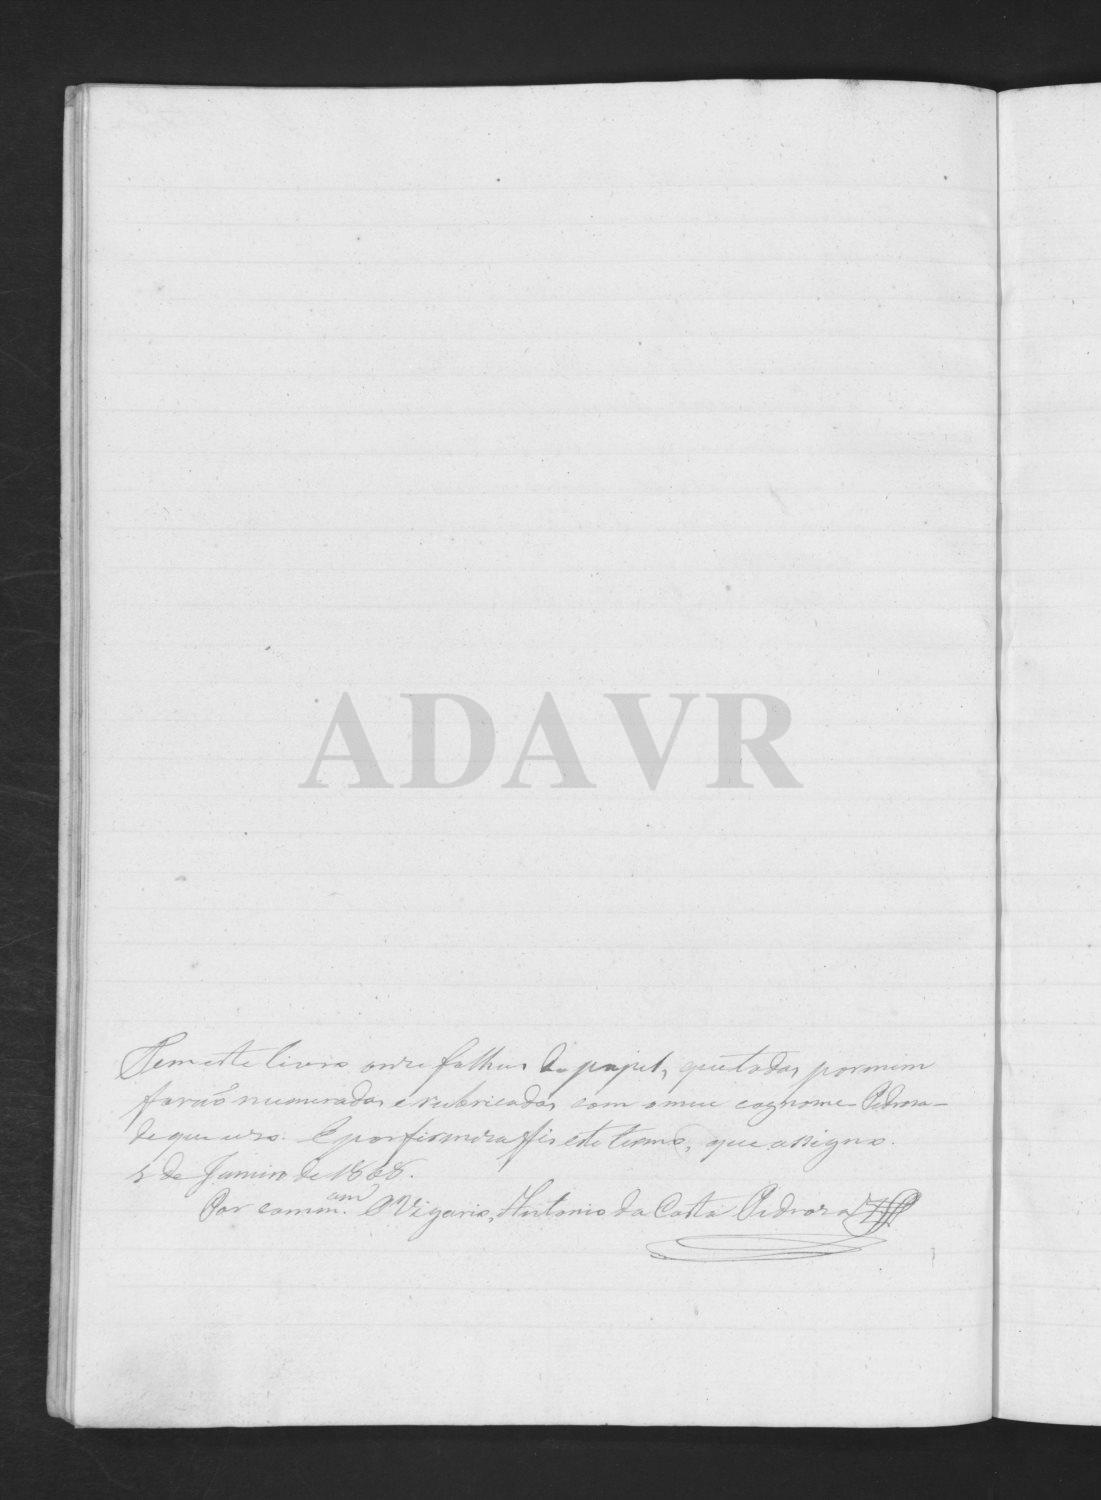 ADAVR
Tem este livro onze folhas de papel, que todas por mim
forão numeradas e rubricadas com o meu cognome - Pedroza -
de que uso. E por firmeza fis este termo, que assigno.
de Janeiro de 1868.
Por comm.am O Vigario, Antonio da Costa Pedroza